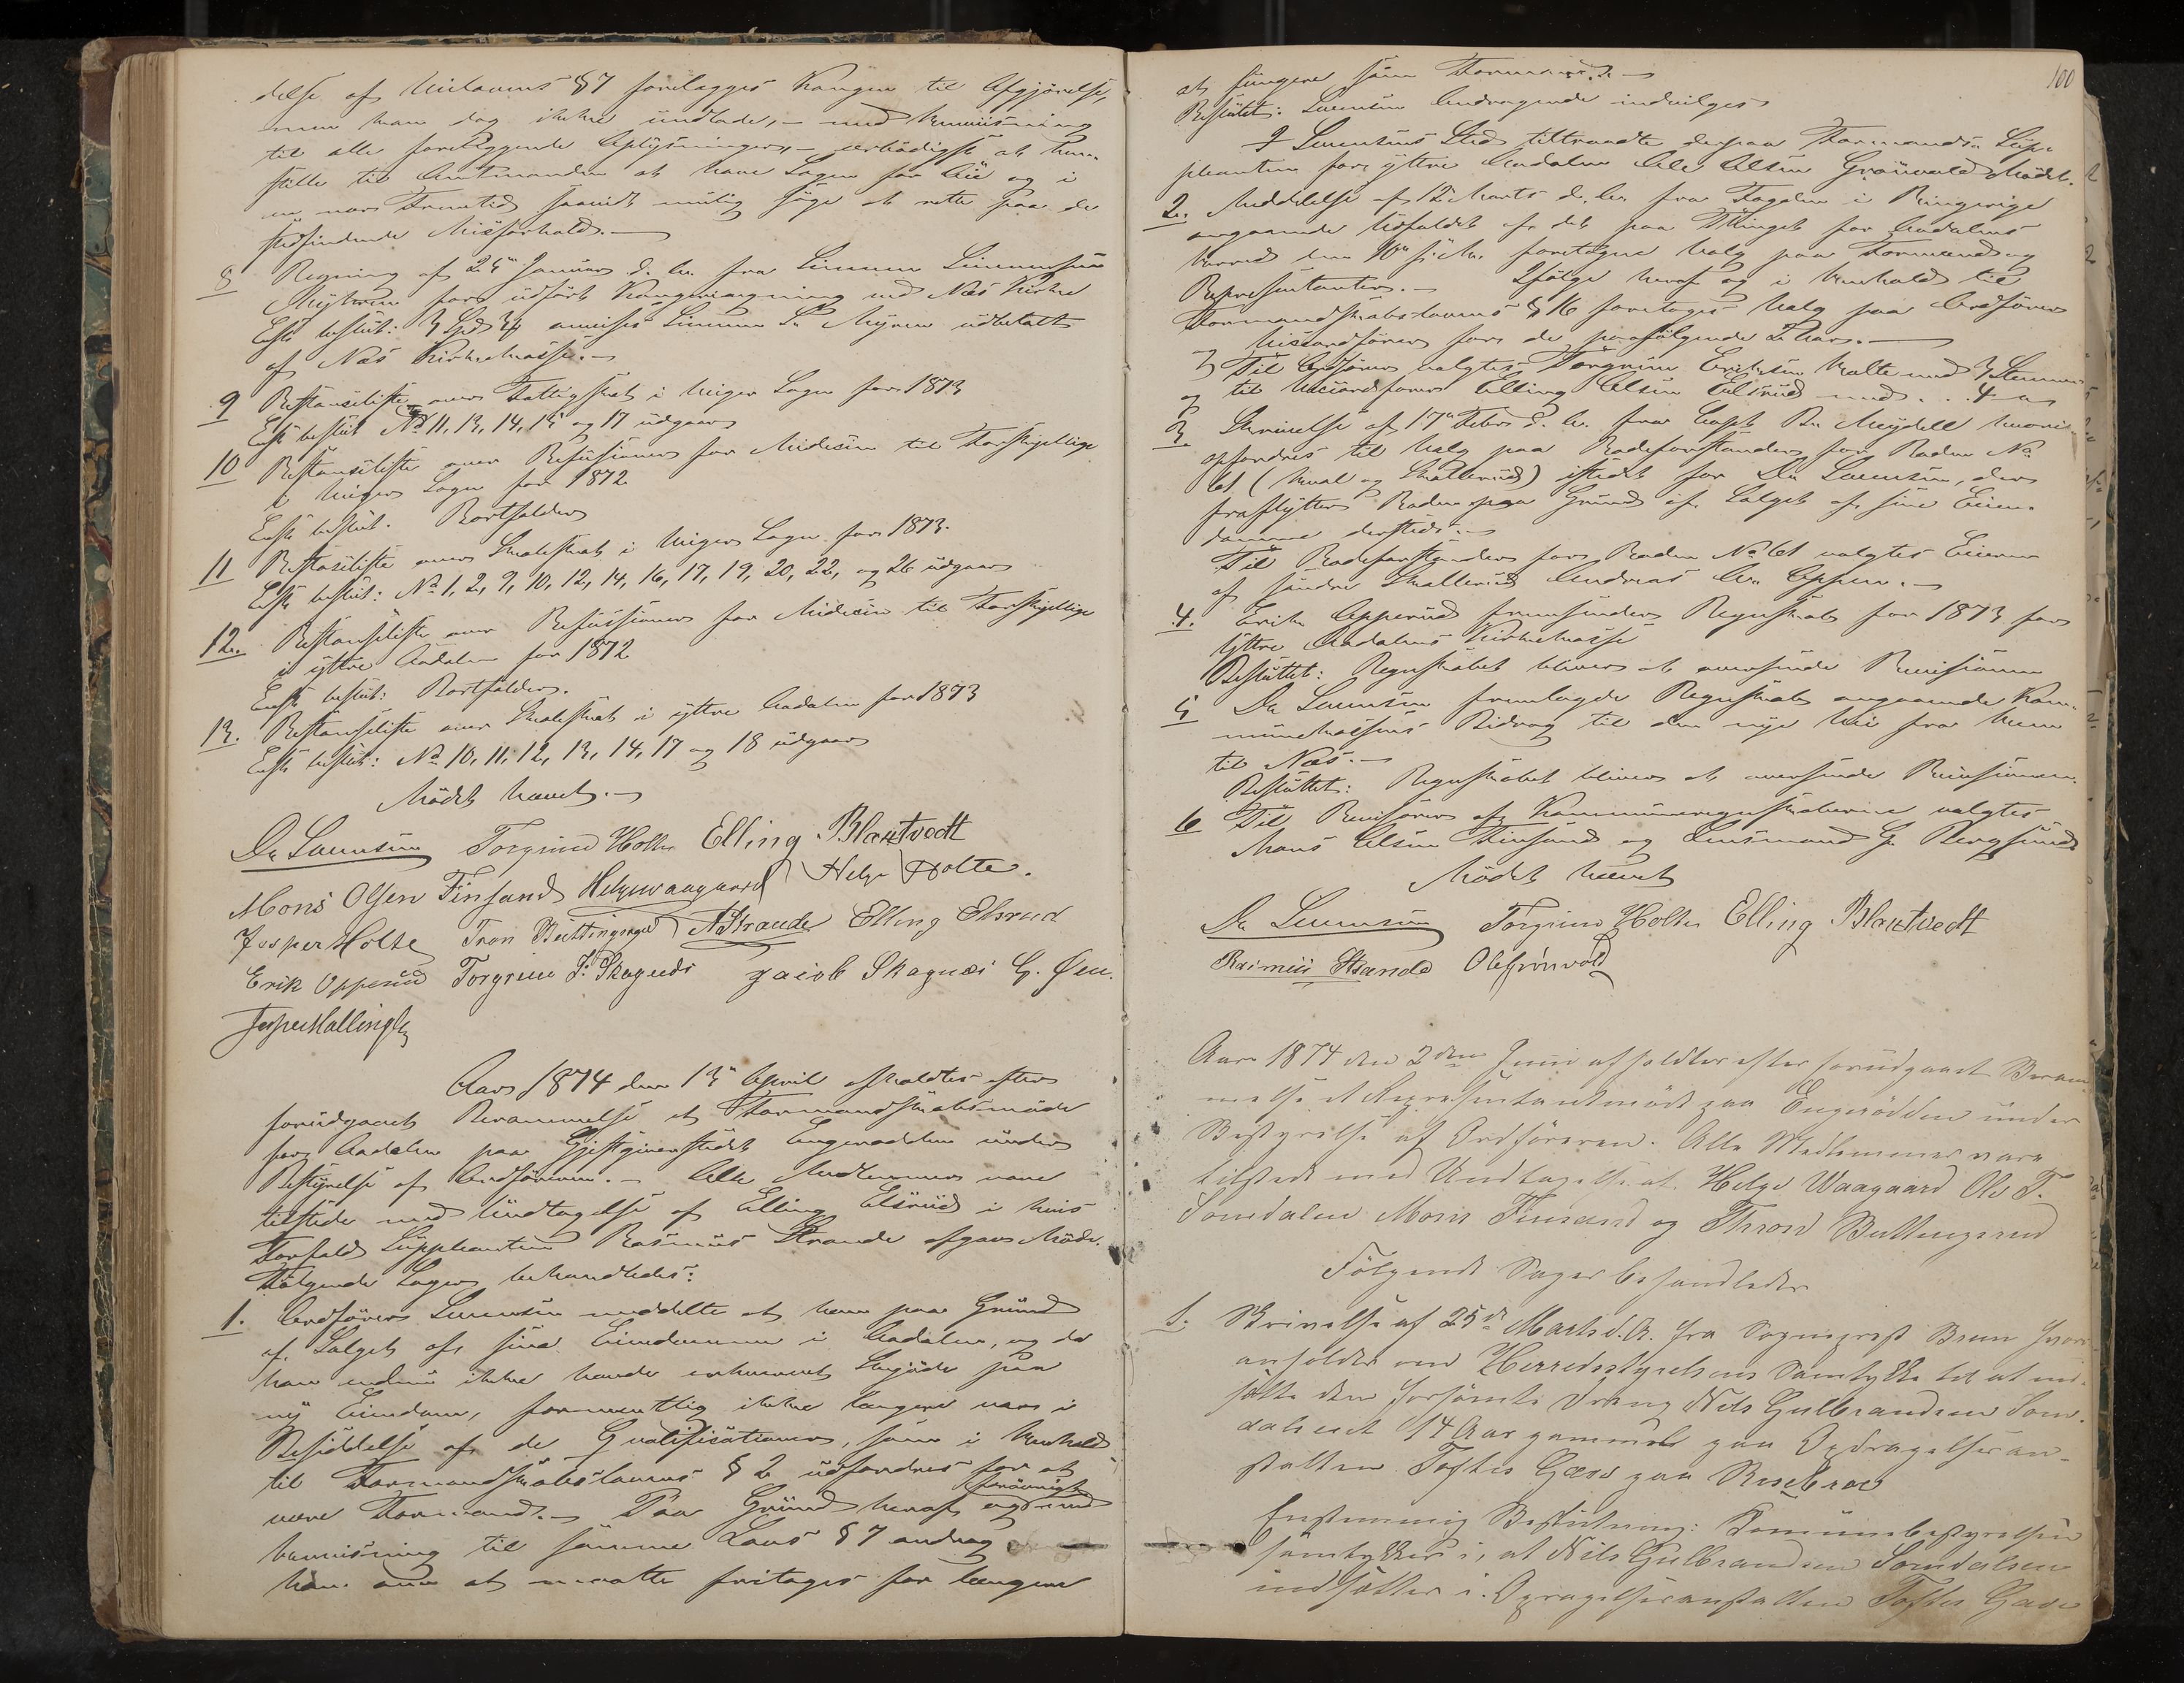 delse af Veilovens § 7 forelægges Kongen til Afgjørelse,
men kan dog ikke undlade, – med Henviisning
til alle foreliggende Oplysninger, – ærbødigst at hen-
stille til Amtmanden at have Sagen for Øie og i
en nær Fremtid saavidt mulig søge at rette paa de
stedfindende Misforhold. –
8 Regning af 25de Januar d. A. fra Simen Simensen
Myhren for udført Kongeringning ved Næs Kirke
Enst. beslut: 3 Spd anvises Simen S. Myren udbetalt
af Næs Kirkekasse. –
9 Restanceliste over Fattigskat i Viger Sogn for 1873
Enst beslut No 11, 13, 14, 15 og 17 udgaar
10 Restanceliste over Refusioner for Medicin til Forskjellige
i Viger Sogn for 1872
Enst beslut. Bortfalder
11 Restanceliste over Skoleskat i Viger Sogn for 1873.
Enst beslut: No 1, 2, 9, 10, 12, 14, 16, 17, 19, 20, 22, og 26 udgaar
12. Restanceliste over Refusioner for Medicin til Forskjellige
i yttre Aadalen for 1872
Enst beslut: Bortfalder.
13. Restanceliste over Skoleskat i yttre Aadalen for 1873
Enst beslut: No 10, 11, 12, 13, 14, 17 og 18 udgaar
Mødet hævet. –
O Svensen Torgrim Holte Elling Blaktvedt
Mons Olsen Finsand Helge Waagaard Helge Holte.
Jesper Holte Tron Buttingsrud A Strande Elling Elsrud
Erik Opperud Torgrim J. Skagnæs Jacob Skagnæs G. Øen.
Jesper Hallingby
Aar 1874 den 15de April afholdtes efter
forudgaaet Berammelse et Formandskabsmøde
for Aadalen paa Gjæstgiverstedet Engerodden under
Bestyrelse af Ordføreren. – Alle Medlemmer vare
tilstede med Undtagelse af Elling Elsrud i hvis
Forfald Suppleanten Rasmus Strande afgav Møde.
Følgende Sager behandledes:
1. Ordfører Svensen meddelte at han paa Grund
af Salget af sine Eiendomme i Aadalen, og da
han endnu ikke havde erhvervet Skjøde paa
ny Eiendom, formentlig ikke længere var i
Besiddelse af de Qvalifikationer, som i Henhold
til Formandskabslovens § 2 udfordres for at
være Formand. – Paa Grund heraf og forøvrigt med
henvisning til samme Lovs § 7 androg
han om at maatte fritages for længere
100
at fungere som Formand. –
Besluttet: Svensens Andragende indvilges
I Svensens Sted tiltraadte derpaa Formands Sup-
pleanten for ytre Aadalen Ole Olsen Grønvold Mødet.
2. Meddelelse af 12 Marts d. A. fra Fogden i Ringerige
angaaende Udfaldet af det paa Thinget for Aadalens
Herred den 10de s. M. foretagne Valg paa Formænd og
Repræsentanter. – Ifølge heraf og i Henhold til
Formandskabslovens § 16 foretages Valg paa Ordfører
og Viceordfører for de paafølgende 2 Aar. –
Til Ordfører valgtes Torgrim Eriksen Holte med 3 Stemmer
og til Viceordfører Elling Olsen Elsrud med . . 4
3 Skrivelse af 17de Febr d. A. fra Capt B. Meydell hvori
opfordres til Valg paa Rodeforstander for Roden No
61 (Hval og Skollerud) istedet for O. Svensen, der
fraflytter Roden paa Grund af Salget af sine Eien-
domme dersteds. –
Til Rodeforstander for Roden No 61 valgtes Eieren
af søndre Skollerud Andreas Oppen. –
4. Erik Opperud fremsender Regnskab for 1873 for
Ytre Aadalens Kirkekasse
Besluttet: Regnskabet bliver at oversende Revisionen
5 O Svensen fremlagde Regnskab angaaende Kom-
munekassens Bidrag til den nye Vei fra Heen
til Næs. –
Besluttet: Regnskabet bliver at oversende Revisionen.
6 Til Revisorer af Kommuneregnskaberne valgtes
Mons Olsen Finsand og Lensmand G. Bergsund
Mødet hævet
O Svensen Torgrim Holte Elling Blaktvedt
Rasmus Strande Ole Grønvold
Aar 1874 den 2den Juni afholdtes efter forudgaaet Beram-
melse et Repræsentantmøde paa Engerodden under
Bestyrelse af Ordføreren. Alle Medlemmer vare
tilstede med Undtagelse af Helge Waagaard Ole T.
Somdalen Mons Finsand og Thron Buttingsrud
Følgende Sager behandledes
1. Skrivelse af 25de Marts d. A. fra Sogneprest Brun hvori
anholdes om Herredsstyrelsens Samtykke til at ind-
sætte den forsømte Dreng Nils Gulbrandsen Som-
dalseie 14 Aar gammel paa Opdragelsesan-
stalten Toftes Gave paa Risebroe
Enstemmig Beslutning: Komunebestyrelsen
samtykker i, at Nils Gulbrandsen Somdalseie
indsættes i Opragelsesanstalten Toftes Gave